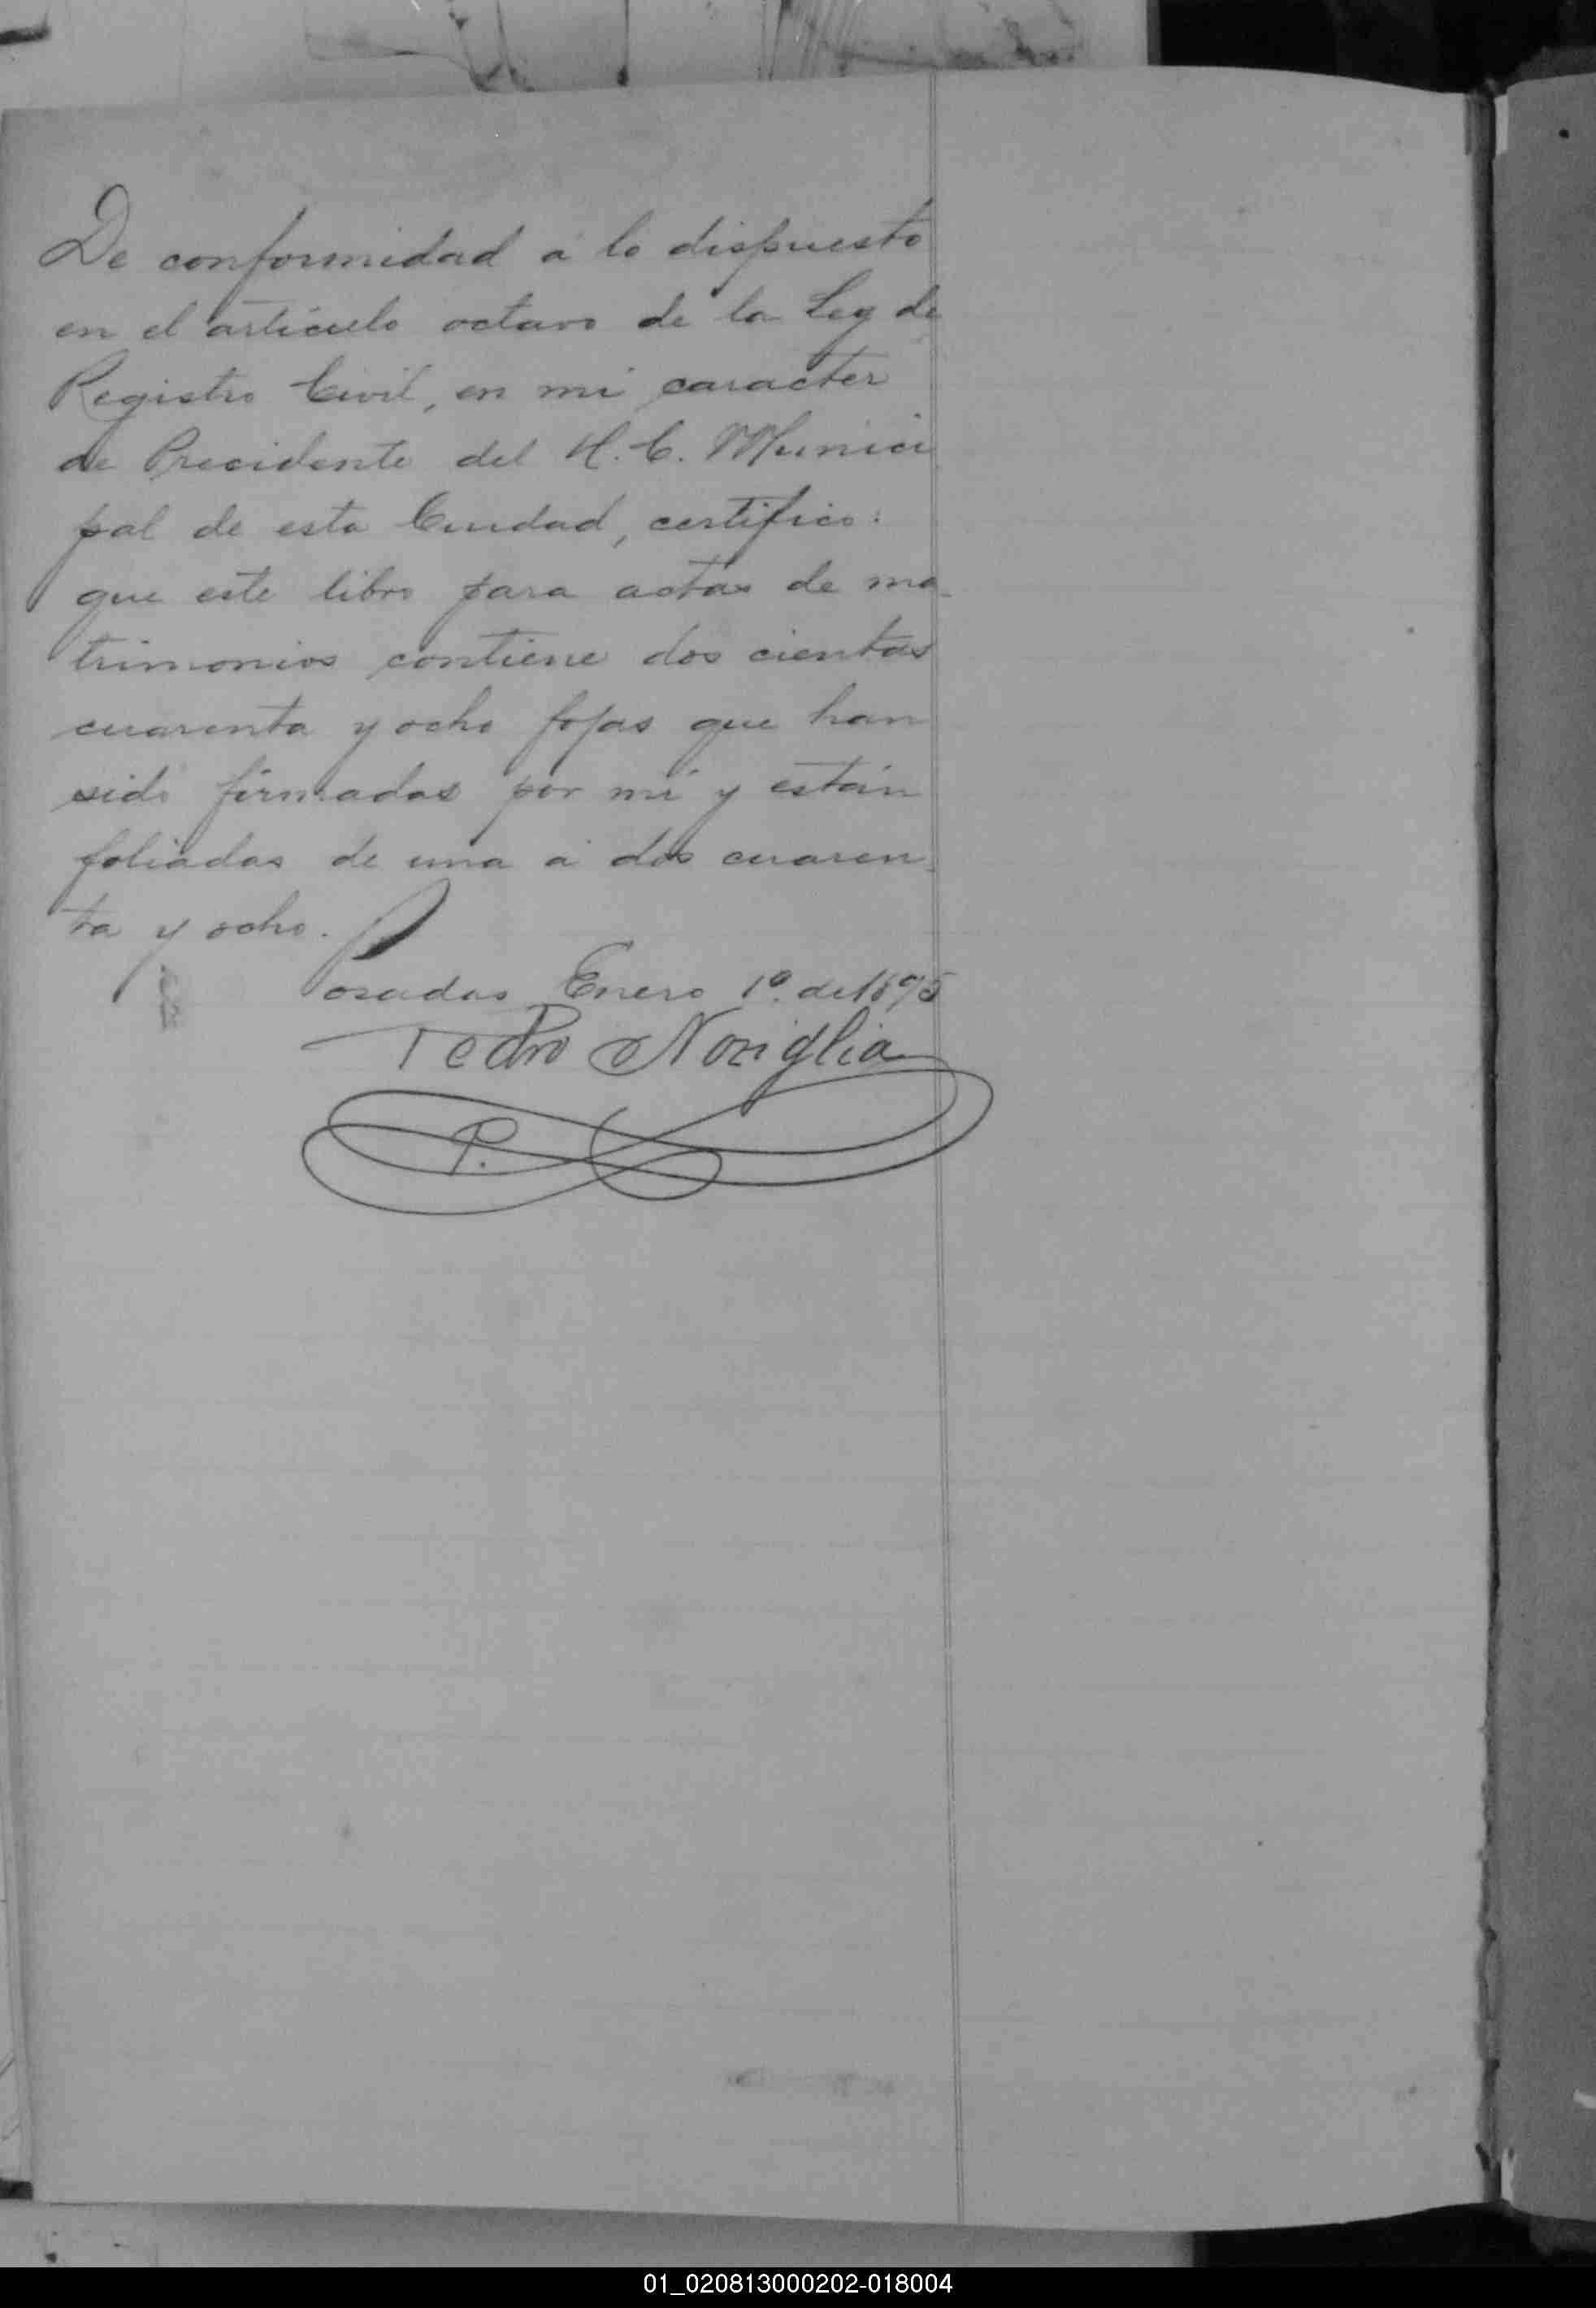 De conformidad á lo dispuesto
en el artículo octavo de la Ley de
Registro Civil, en mi caracter
de Precidente del H. C. Munici
pal de esta Ciudad, certifico:
que este libro para actas de ma-
trimonios contiene dos cientas
cuarenta y ocho fojas que han
sido firmadas por mí y están
foliadas de una á dos cuaren-
ta y ocho.
Posadas Enero 1º. de 1895
Pedro Noziglia
P.
01_020813000202-018004